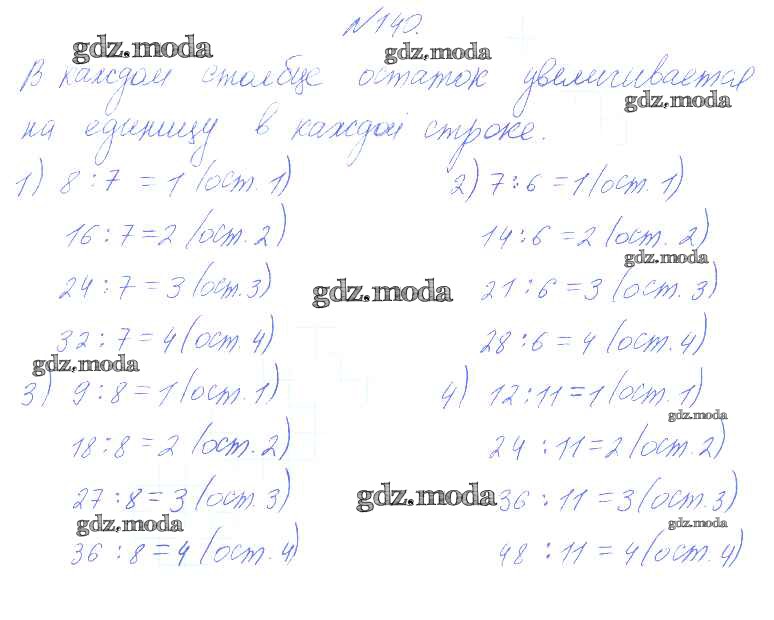 №140.
gdz.moda gdz.moda
В каждом столбце остаток увеличивается
gdz.moda
на единицу в каждой строке.
1) 8 : 7 = 1 (ост. 1) 2) 7 : 6 = 1 (ост. 1)
16 : 7 = 2 (ост. 2) 14 : 6 = 2 (ост. 2)
gdz.moda
24 : 7 = 3 (ост. 3) gdz.moda 21 : 6 = 3 (ост. 3)
32 : 7 = 4 (ост. 4) 28 : 6 = 4 (ост. 4)
gdz.moda
3) 9 : 8 = 1 (ост. 1) 4) 12 : 11 = 1 (ост. 1)
gdz.moda
18 : 8 = 2 (ост. 2) 24 : 11 = 2 (ост. 2)
27 : 8 = 3 (ост. 3) gdz.moda 36 : 11 = 3 (ост. 3)
gdz.moda gdz.moda
36 : 8 = 4 (ост. 4) 48 : 11 = 4 (ост. 4)